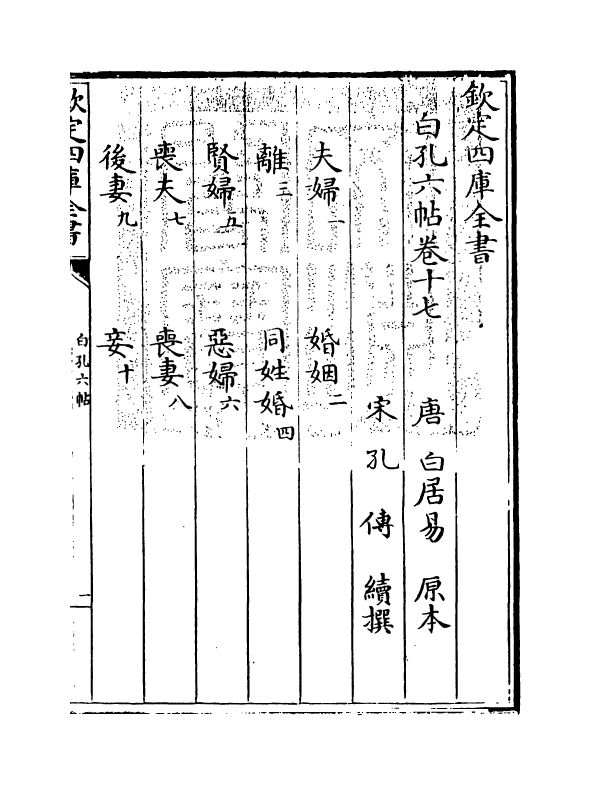 欽定四庫全書
白孔六帖卷十七
唐 白居易 原本
宋 孔 傳 續撰
夫婦一 婚姻二
離三 同姓婚四
賢婦五 惡婦六
喪夫七 喪妻八
後妻九 妾十
欽定四庫全書
白孔六帖